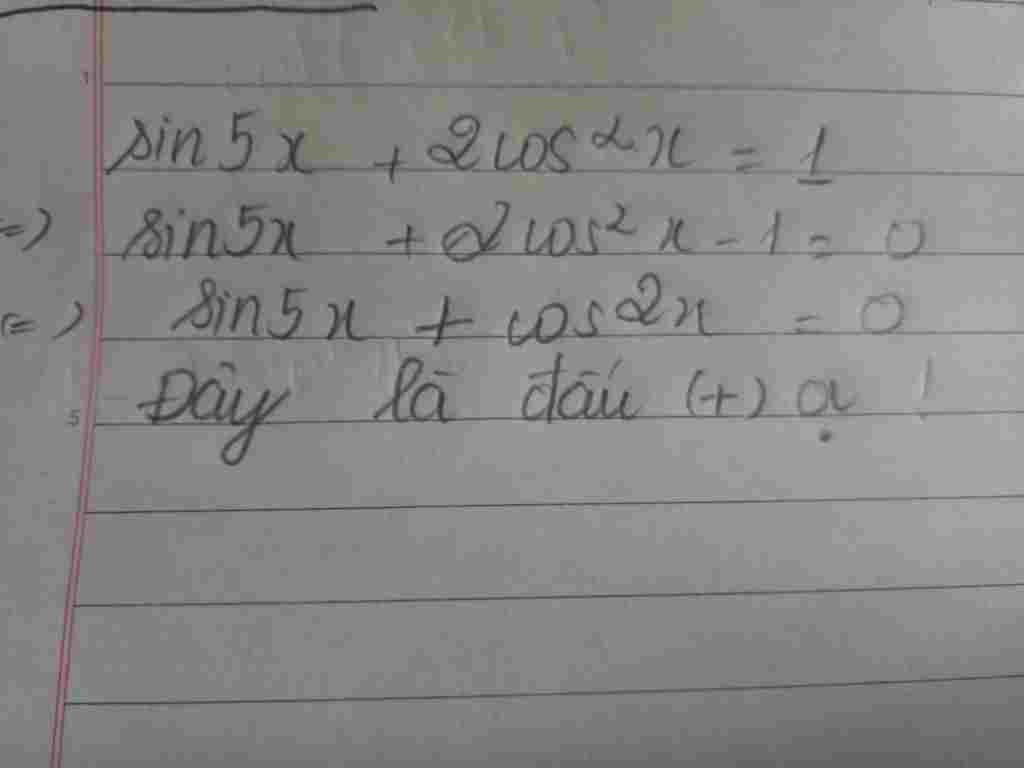 sin5x + 2cos²x = 1
=) sin5x + 2cos²x - 1 = 0
(=) sin5x + cos2x = 0
Đây là dấu (+) ạ !